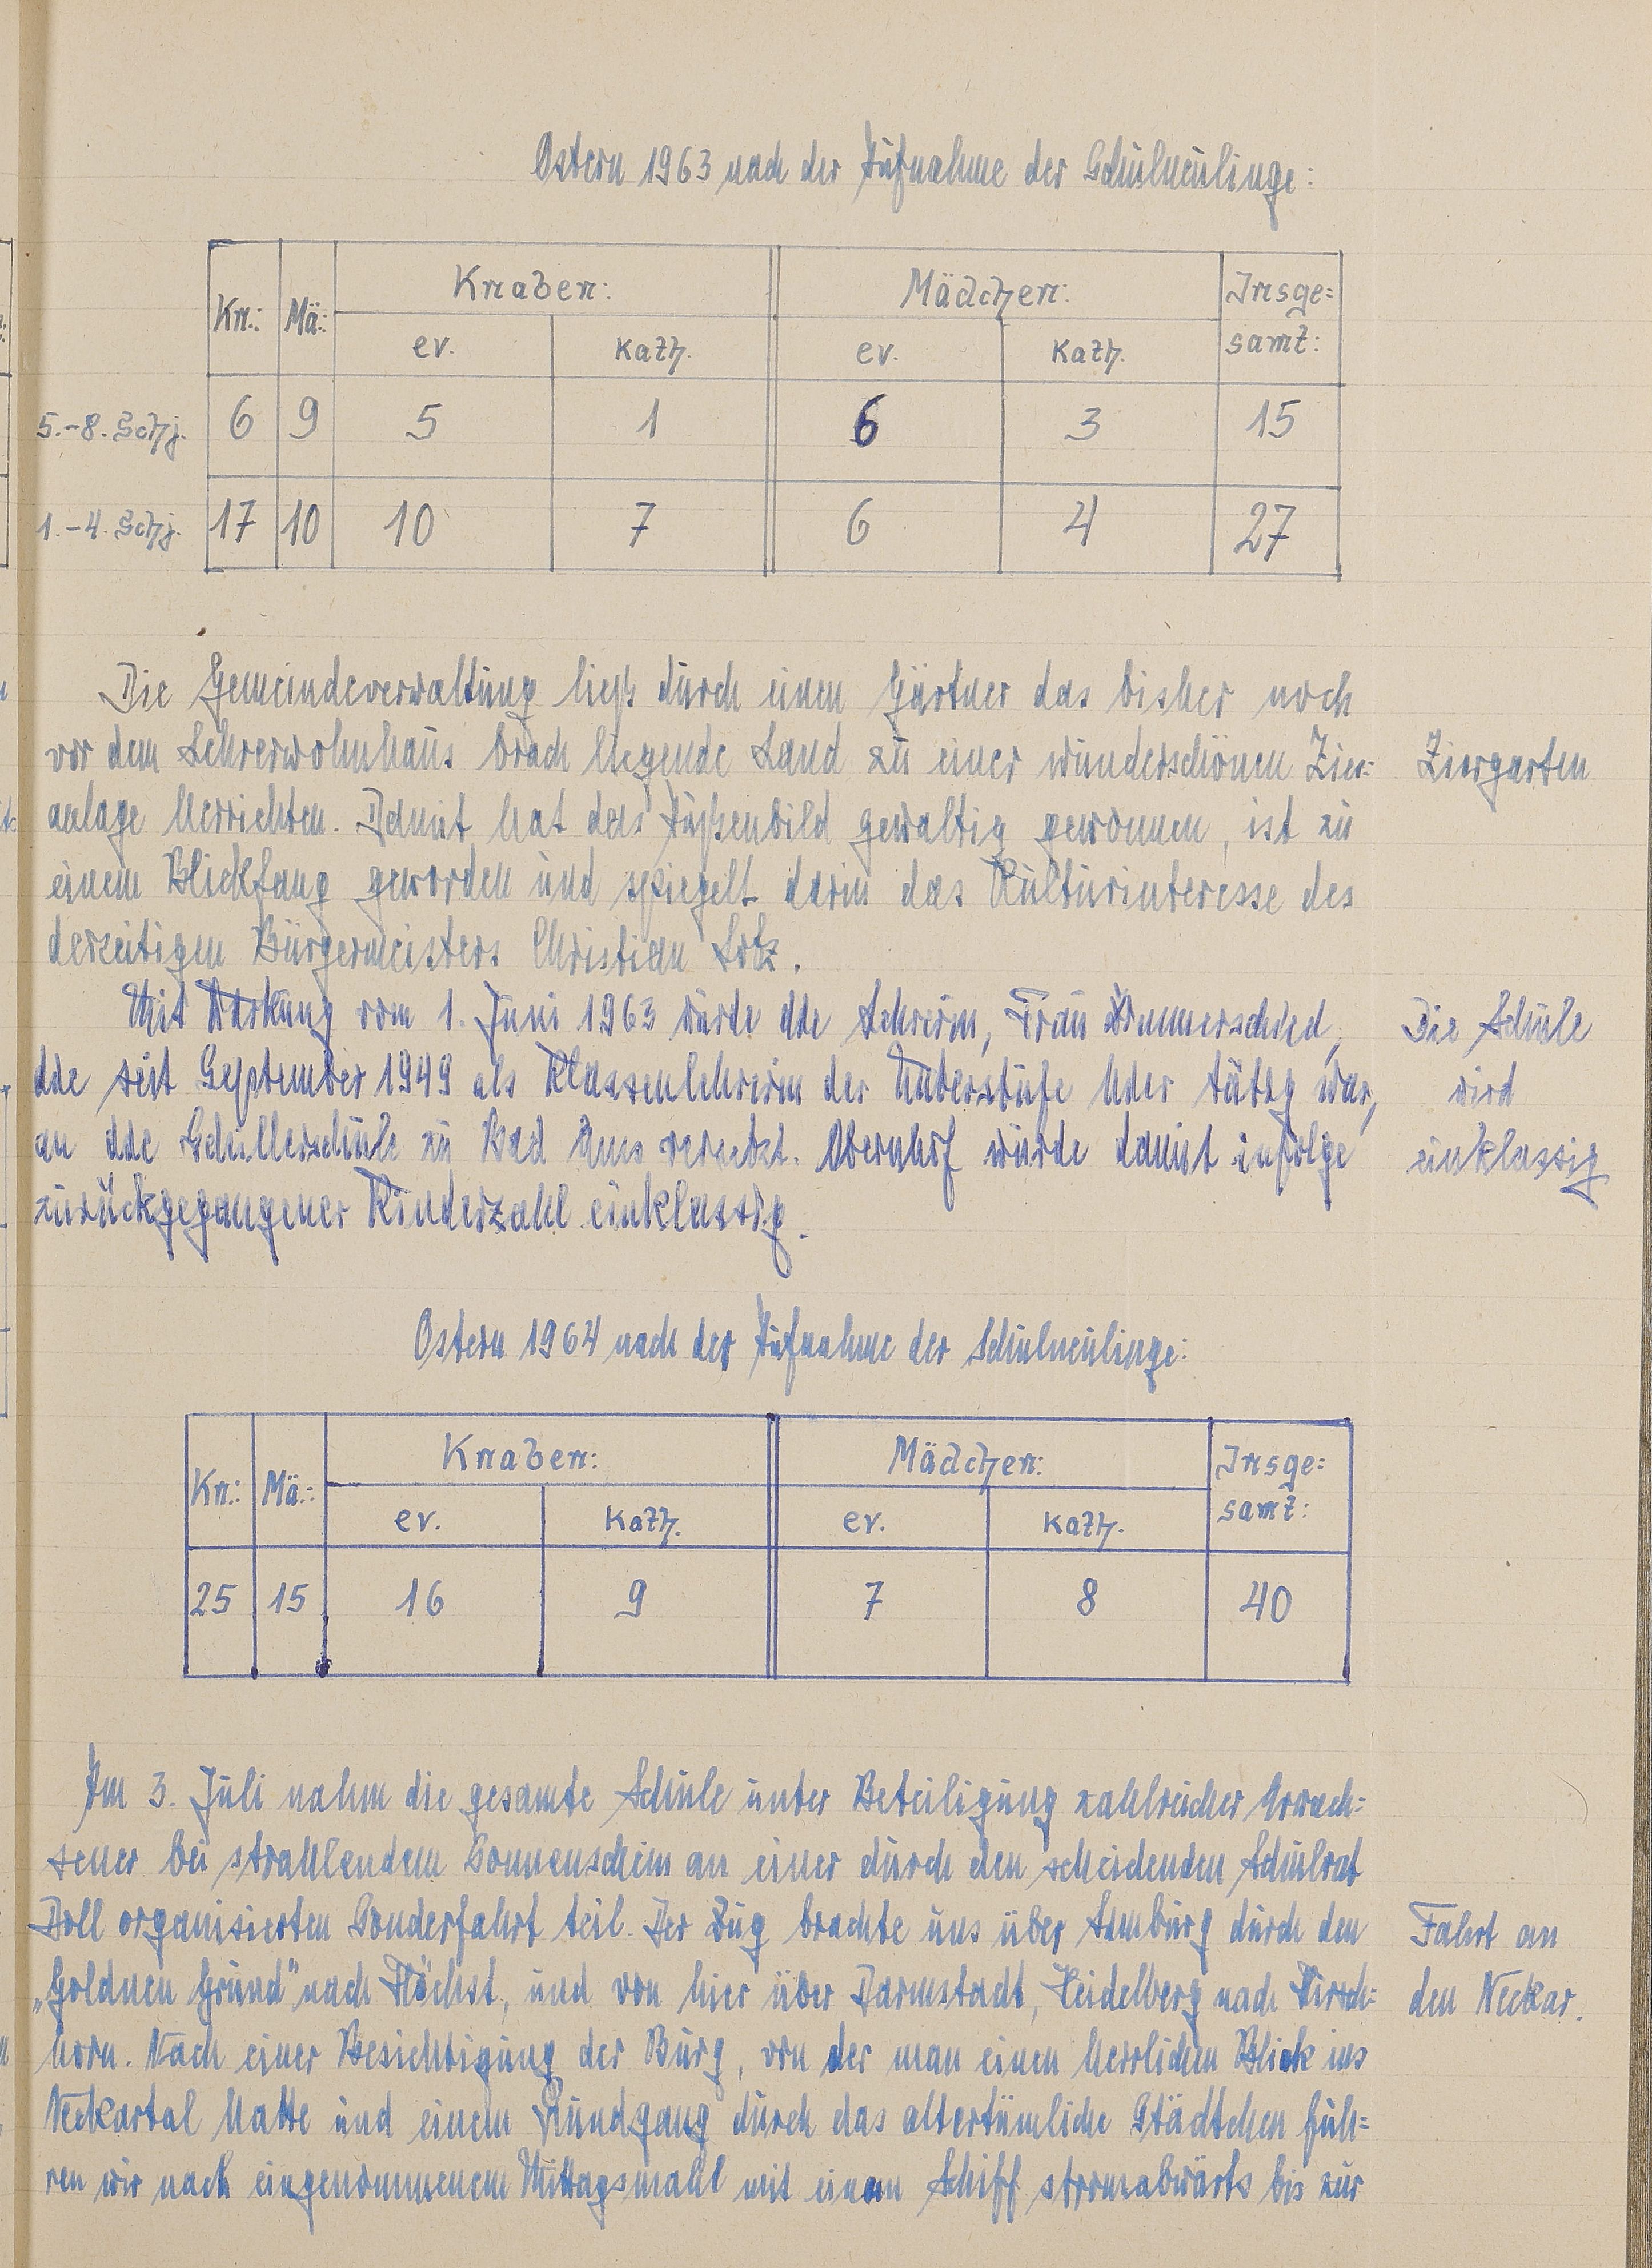 Ostern 1963 nach der Aufnahme der Schulneulinge:
Kn.: Mä.: Knaben: Mädchen: Insge=
samt:
ev. kath. ev. kath.
5.-8. Schj. 6 9 5 1 6 3 15
1.-4. Schj. 17 10 10 7 6 4 27
Die Gemeindeverwaltung ließ durch einen Gärtner das bisher noch
vor dem Lehrerwohnhaus brach liegende Land zu einer wunderschönen Zier=
Ziergarten
anlage herrichten. Damit hat das Außenbild gewaltig gewonnen, ist zu
einem Blickfang geworden und spiegelt darin das Kulturinteresse des
derzeitigen Bürgermeisters Christian Lotz.
Mit Wirkung vom 1. Juni 1963 wurde die Lehrerin, Frau
Die Schule
die seit September 1949 als Klassenlehrerin der Unterstufe hier tätig war,
wird
an die Schillerschule zu Bad Ems versetzt. Obernhof wurde damit infolge
einklassig
zurückgegangener Kinderzahl einklassig.
Ostern 1964 nach der Aufnahme der Schulneulinge:
Kn.: Mä.: Knaben: Mädchen: Insge=
samt:
ev. kath. ev. kath.
25 15 16 9 7 8 40
Am 3. Juli nahm die gesamte Schule unter Beteiligung zahlreicher Erwach=
sener bei strahlendem Sonnenschein an einer durch den scheidenden Schulrat
Doll organisierten Sonderfahrt teil. Der Zug brachte uns über Limburg durch den
Fahrt an
„Goldnen Grund" nach Höchst, und von hier über Darmstadt, Heidelberg nach Hirsch=
den Neckar.
horn. Nach einer Besichtigung der Burg, von der man einen herrlichen Blick ins
Neckartal hatte und einem Rundgang durch das altertümliche Städtchen fuh=
ren wir nach eingenommenem Mittagsmahl mit einem Schiff stromabwärts bis zur